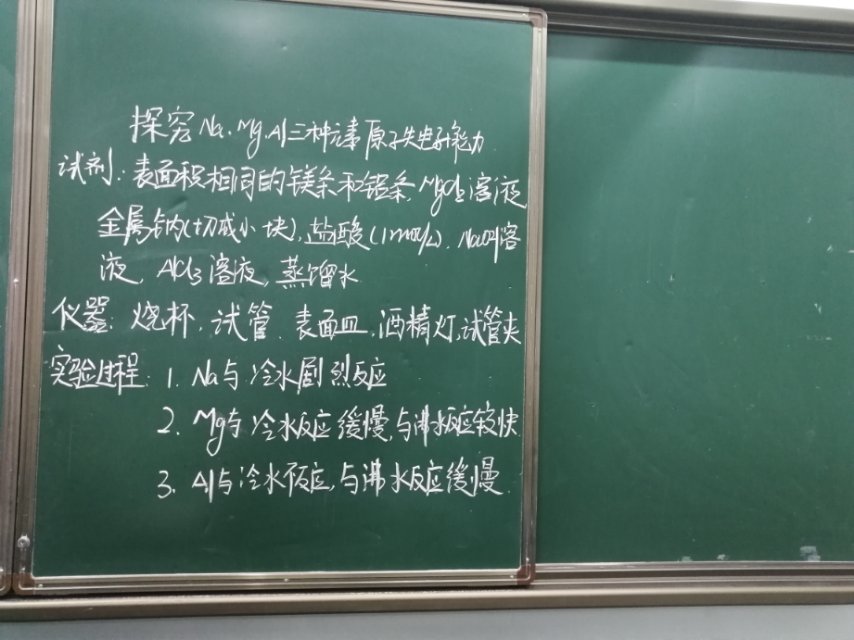 探究Na、Mg、Al三种元素原子失电子能力
试剂：表面积相同的镁条和铝条，MgCl₂溶液
金属钠(切成小块)，盐酸(1mol/L)，NaOH溶
液，AlCl₃溶液，蒸馏水
仪器：烧杯，试管，表面皿，酒精灯，试管夹
实验过程：1. Na与冷水剧烈反应
2. Mg与冷水反应缓慢，与沸水反应较快
3. Al与冷水不反应，与沸水反应缓慢